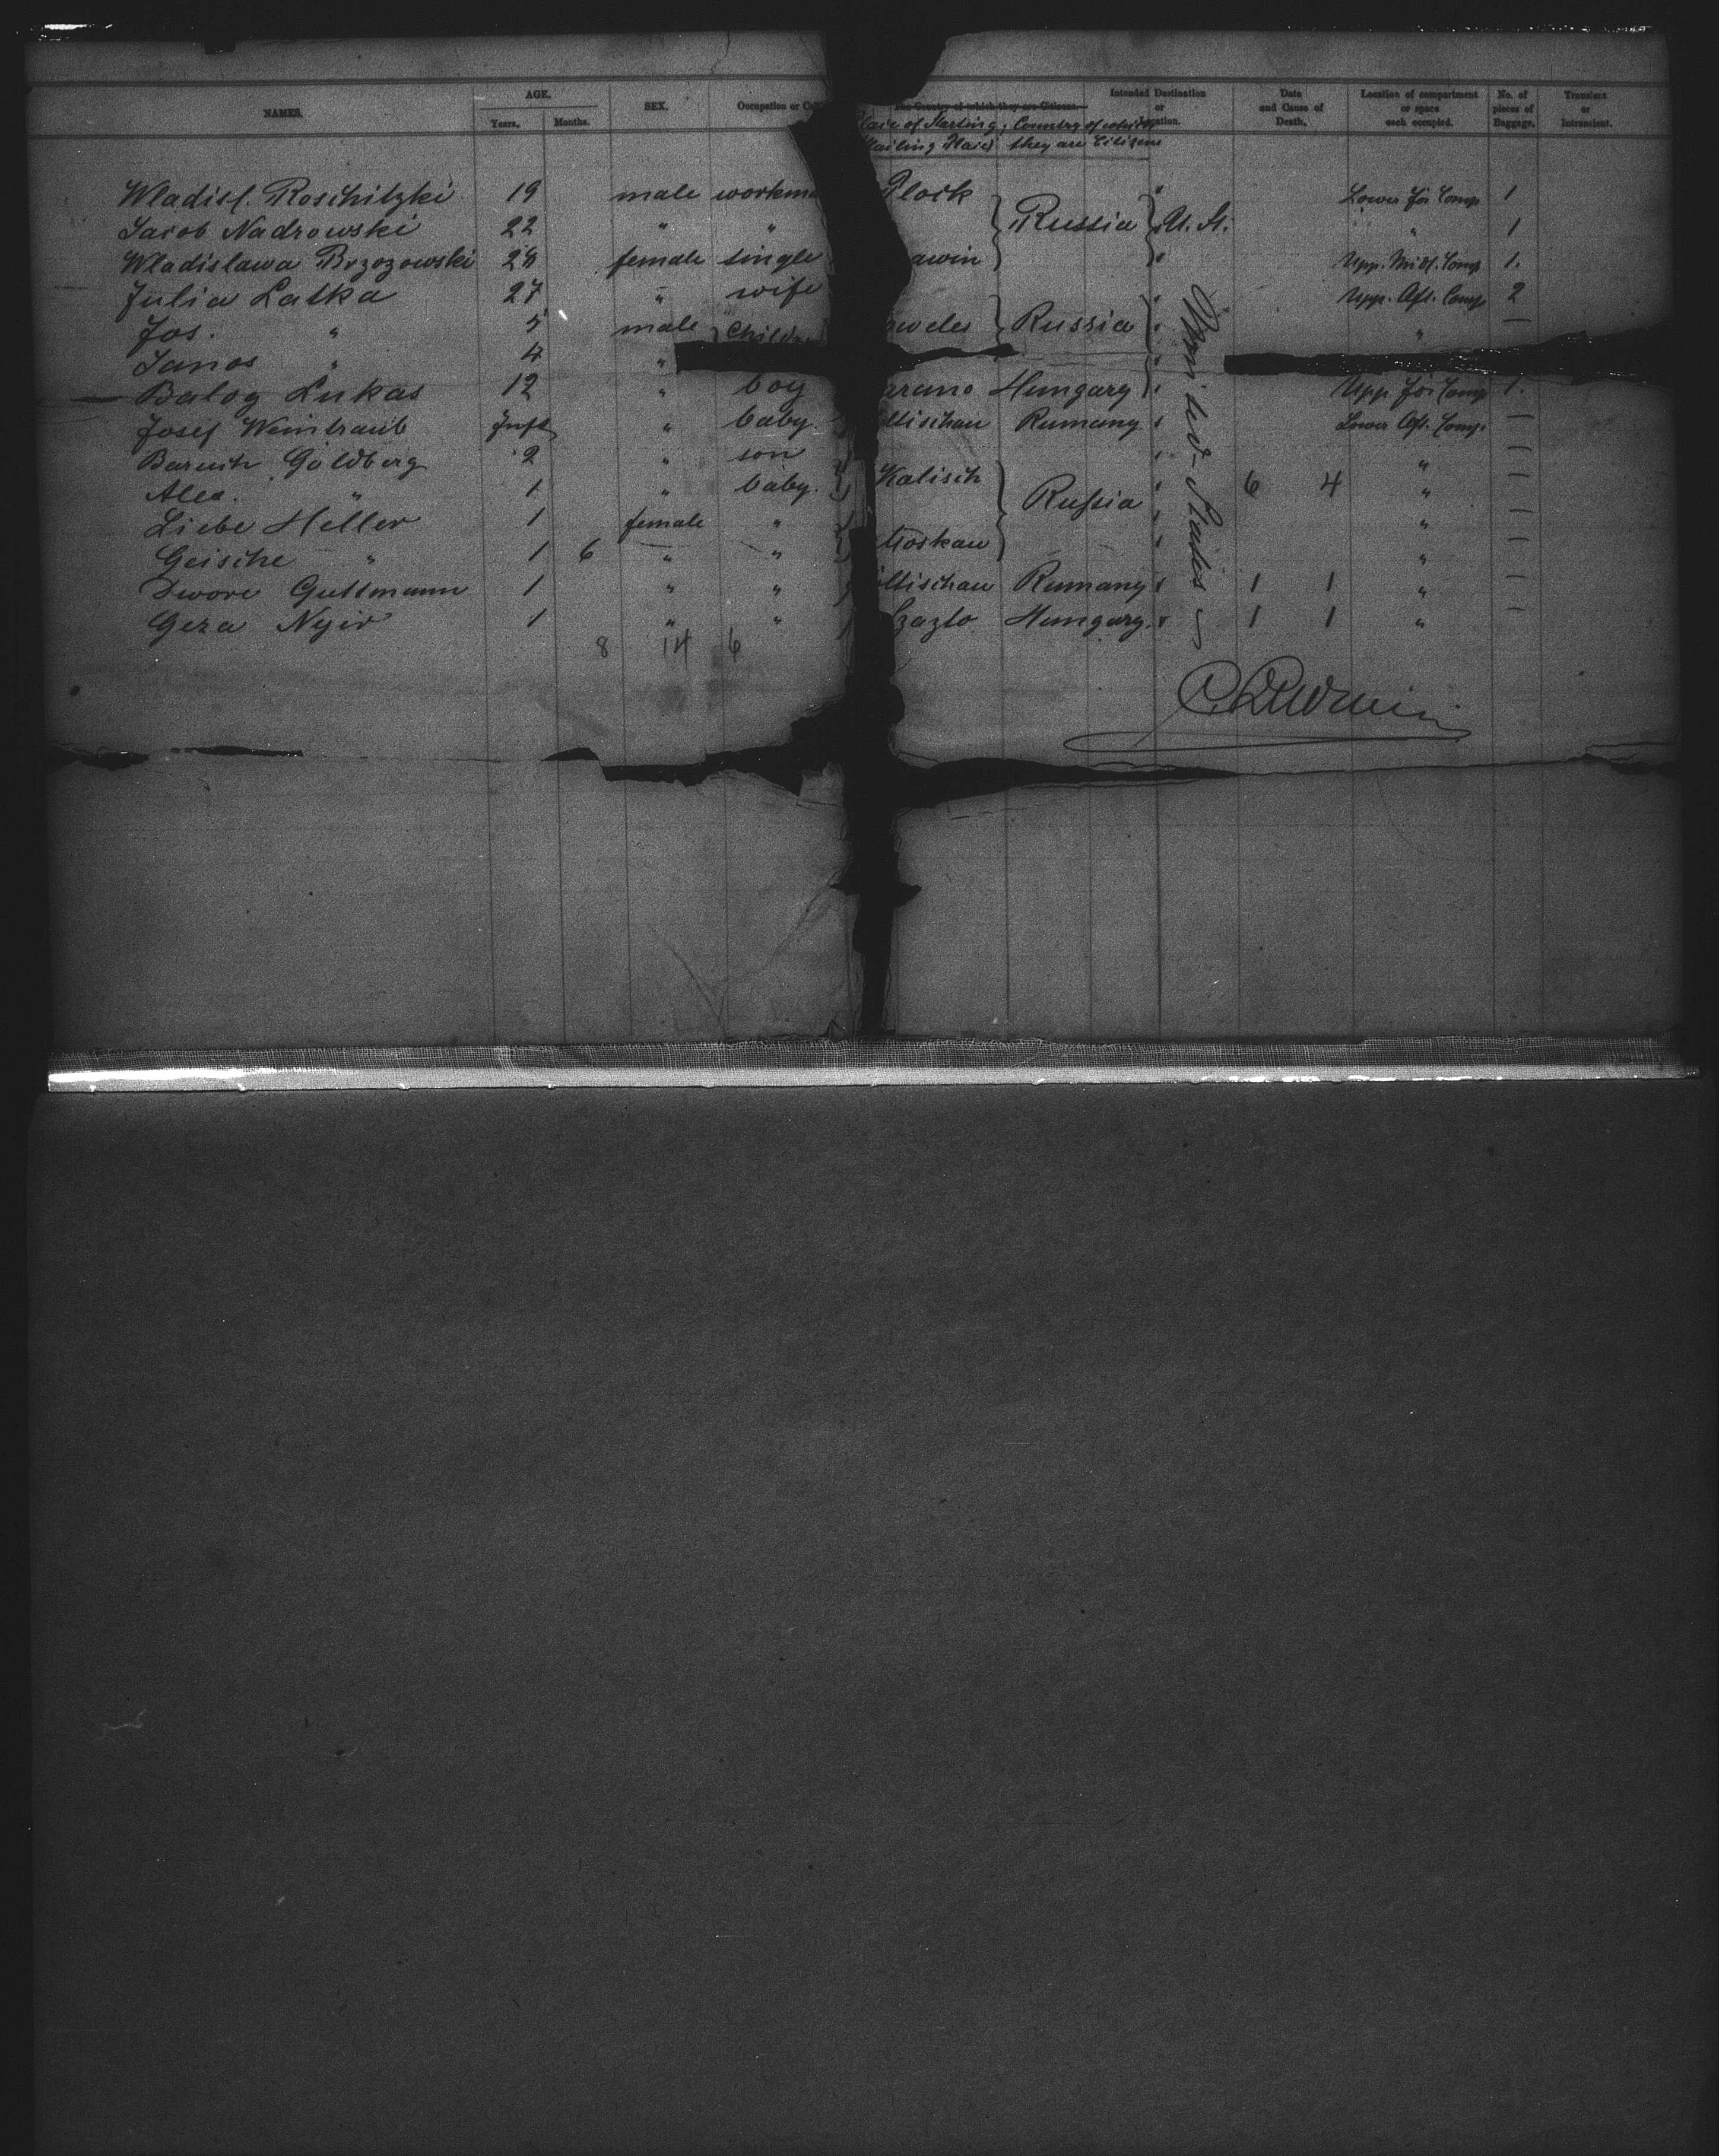 NAMES. AGE. SEX. Occupation or Intended Destination or Location. Date and Cause of Death. Location of compartment or space each occupied. No. of pieces of Baggage. Transient or Intransient.
Years. Months.
The Country of which they are Citizens
Place of Starting, Country of which
they are Citizens
Wladisl. Roschitzki 19 male workma Plock " Lower for Comp 1
Jacob Nadrowski 22 " " Russia U. St. " 1
Wladislawa Brzozowski 28 female single awin " Upp. Midl. Comp 1.
Julia Latka 27 " wife " Upp. Aft. Comp 2
Jos. " 5 male Childr Russia " " —
Janos " 4 " "
Balog Lukas 12 " boy Hungary " Upp for Comp 1.
Josef Weintraub Inft " baby. ltischau Rumany " Lower Aft. Comp. —
Baruch Goldberg 2 " son " " —
Alex. " 1 " baby. Kalisch Russia " 6 4 " —
Liebe Heller 1 female " " " —
Geische " 1 6 " " Moskau " " —
Dwore Guttmann 1 " " ltischau Rumany " 1 1 " —
Geza Nyir 1 " " Szazlo Hungary " 1 1 " —
United-States
8 14 6